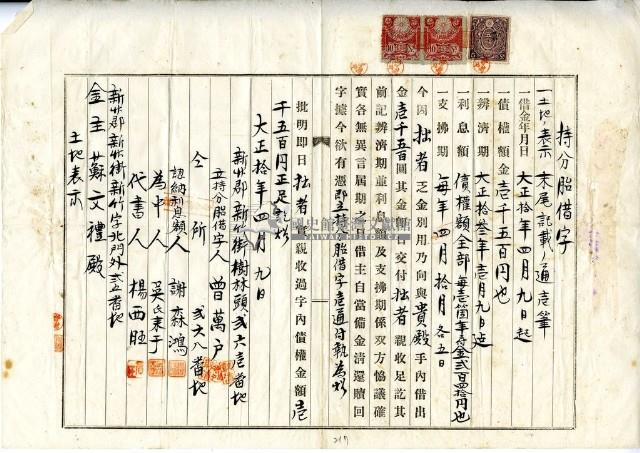 持分胎借字
一土地ノ表示 末尾記載ノ通壱筆
一借金年月日 大正拾年四月九日起
一債權額金壱千五百円也
一辨濟期 大正拾叁年壱月九日迄
一利息額 債權額全部每壱箇年金弐百四拾円也
一支拂期 每年四月拾月各五日
今因拙者乏金別用乃向與貴殿手內借出
金壱千五百圓其金即日交付拙者親收足訖其
前記辨濟期並利息額及支拂期係双方恊議確
實各無異言屆期之日借主自當備金清還贖回
字據今欲有憑即立持分胎借字壱通付執為炤
批明即日拙者實親收過字內債權金額壱
千五百円正足訖炤
大正拾年四月九日
新竹郡新竹街樹林頭弐六壱番地
立持分胎借字人 曾萬戶
仝所 弐六八番地
認納利息額人 謝森鴻
為中人 吳氏
代書人 楊西旺
新竹郡新竹街新竹字北門外弐五番地
金主蘇文禮殿
土地表示
國史館臺灣文獻館
TAIWAN HISTORICA
217